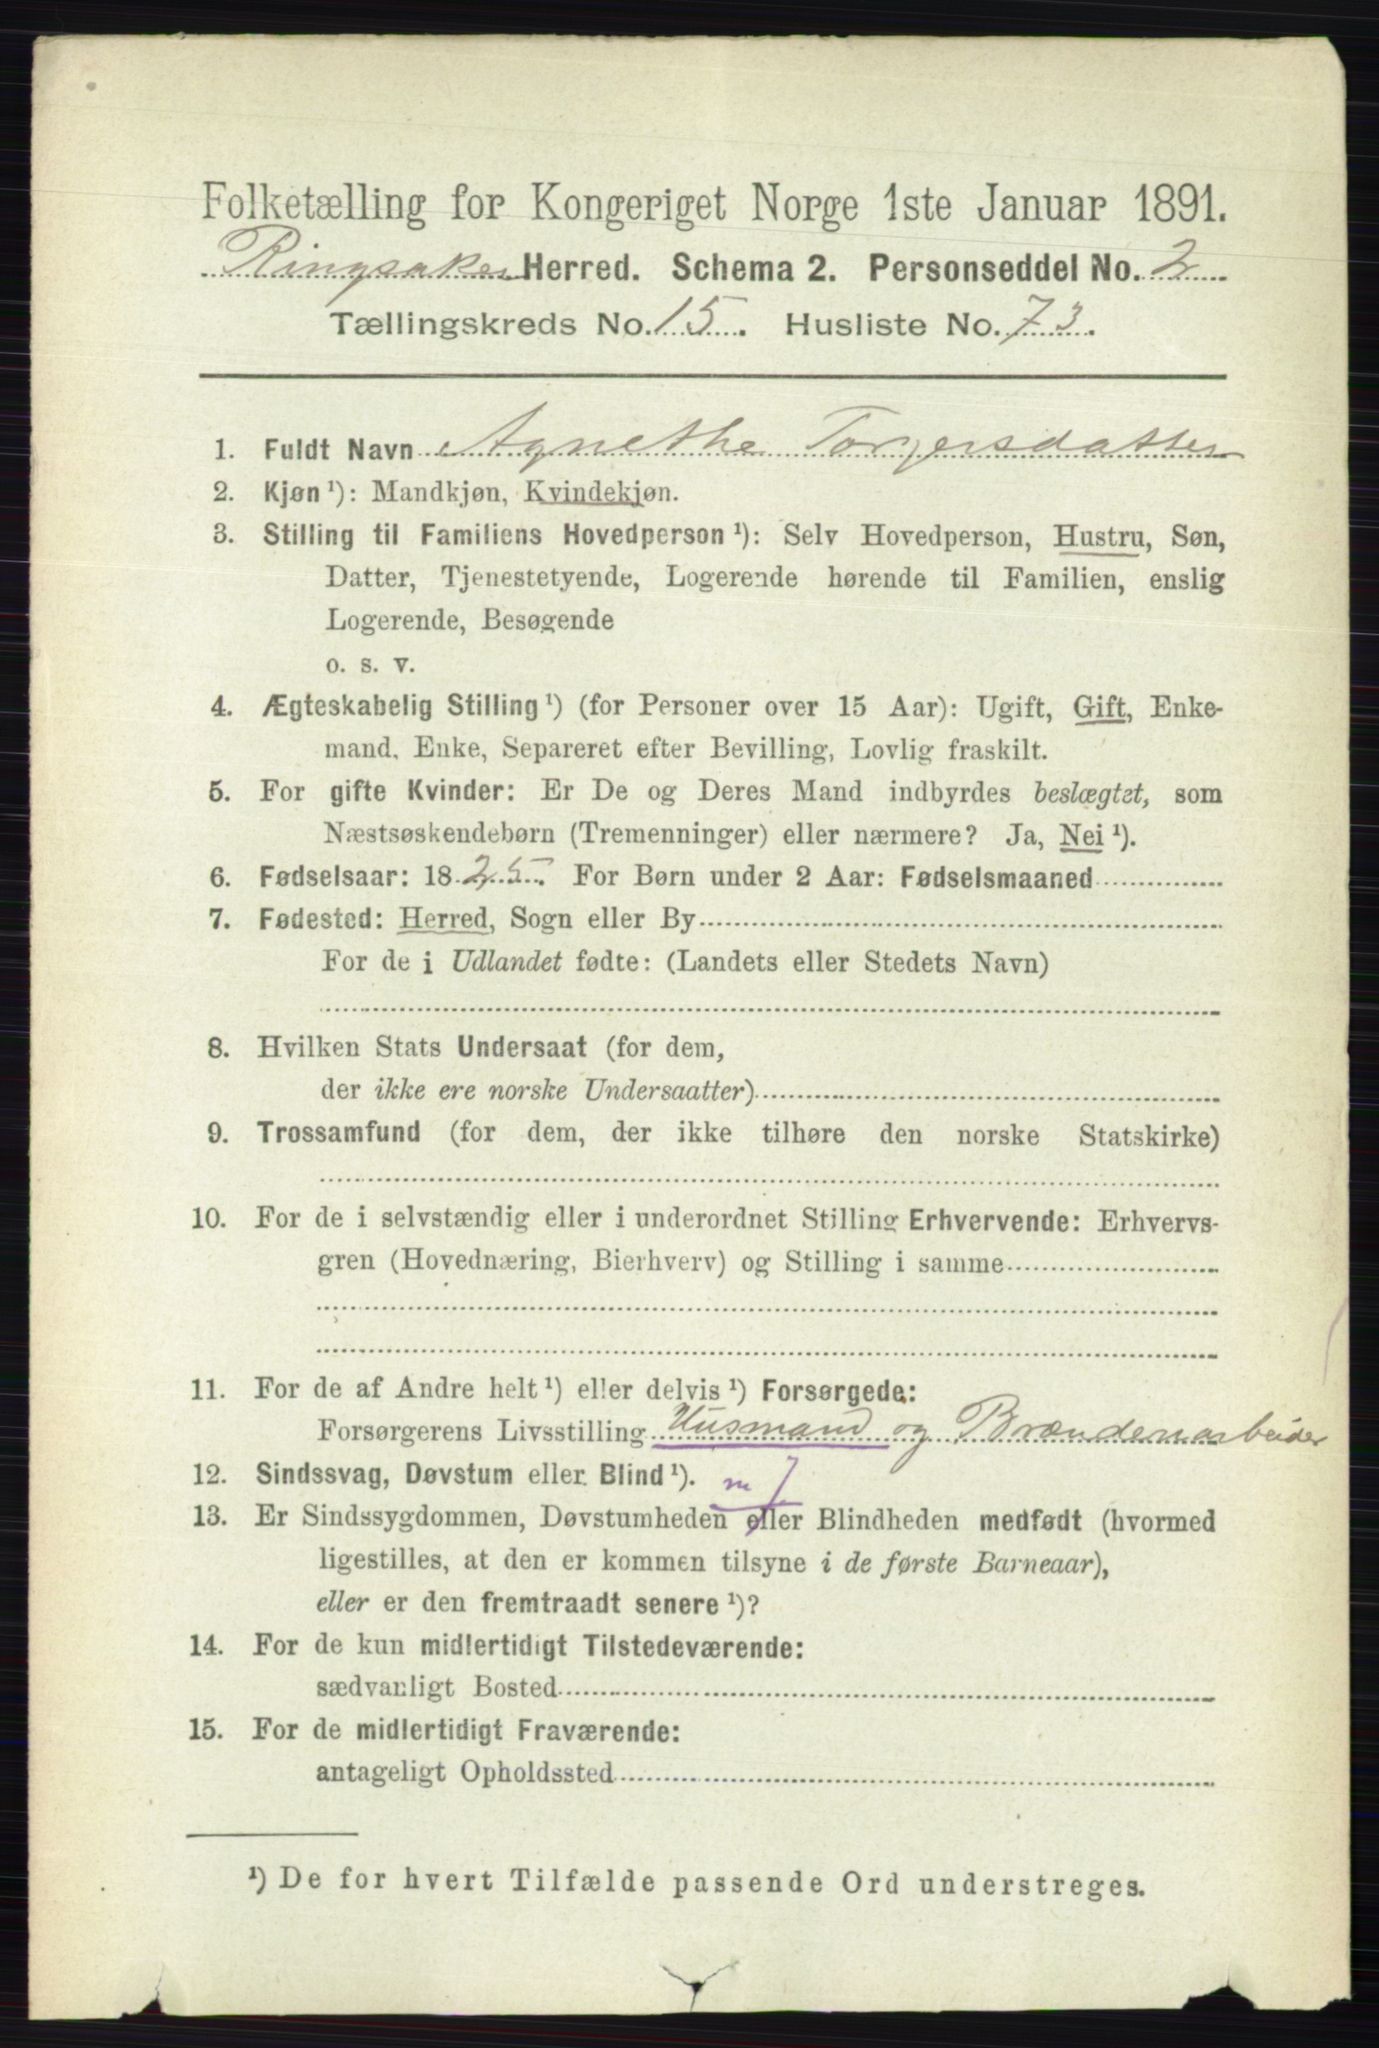 Folketælling for Kongeriget Norge 1ste Januar 1891.
Ringsaker Herred. Schema 2. Personseddel No. 2
Tællingskreds No. 15. Husliste No. 73.
1. Fuldt Navn Agnethe Torgersdatter
2. Kjøn ¹): Mandkjøn, Kvindekjøn.
3. Stilling til Familiens Hovedperson ¹): Selv Hovedperson, Hustru, Søn,
Datter, Tjenestetyende, Logerende hørende til Familien, enslig
Logerende, Besøgende
o. s. v.
4. Ægteskabelig Stilling ¹) (for Personer over 15 Aar): Ugift, Gift, Enke-
mand, Enke, Separeret efter Bevilling, Lovlig fraskilt.
5. For gifte Kvinder: Er De og Deres Mand indbyrdes beslægtet, som
Næstsøskendebørn (Tremenninger) eller nærmere? Ja, Nei ¹).
6. Fødselsaar: 1825. For Børn under 2 Aar: Fødselsmaaned
7. Fødested: Herred, Sogn eller By
For de i Udlandet fødte: (Landets eller Stedets Navn)
8. Hvilken Stats Undersaat (for dem,
der ikke ere norske Undersaatter)
9. Trossamfund (for dem, der ikke tilhøre den norske Statskirke)
10. For de i selvstændig eller i underordnet Stilling Erhvervende: Erhvervs-
gren (Hovednæring, Bierhverv) og Stilling i samme
11. For de af Andre helt ¹) eller delvis ¹) Forsørgede:
Forsørgerens Livsstilling Husmand og Brændenarbeider
12. Sindssvag, Døvstum eller Blind ¹). m 7
13. Er Sindssygdommen, Døvstumheden eller Blindheden medfødt (hvormed
ligestilles, at den er kommen tilsyne i de første Barneaar),
eller er den fremtraadt senere ¹)?
14. For de kun midlertidigt Tilstedeværende:
sædvanligt Bosted
15. For de midlertidigt Fraværende:
antageligt Opholdssted
¹) De for hvert Tilfælde passende Ord understreges.